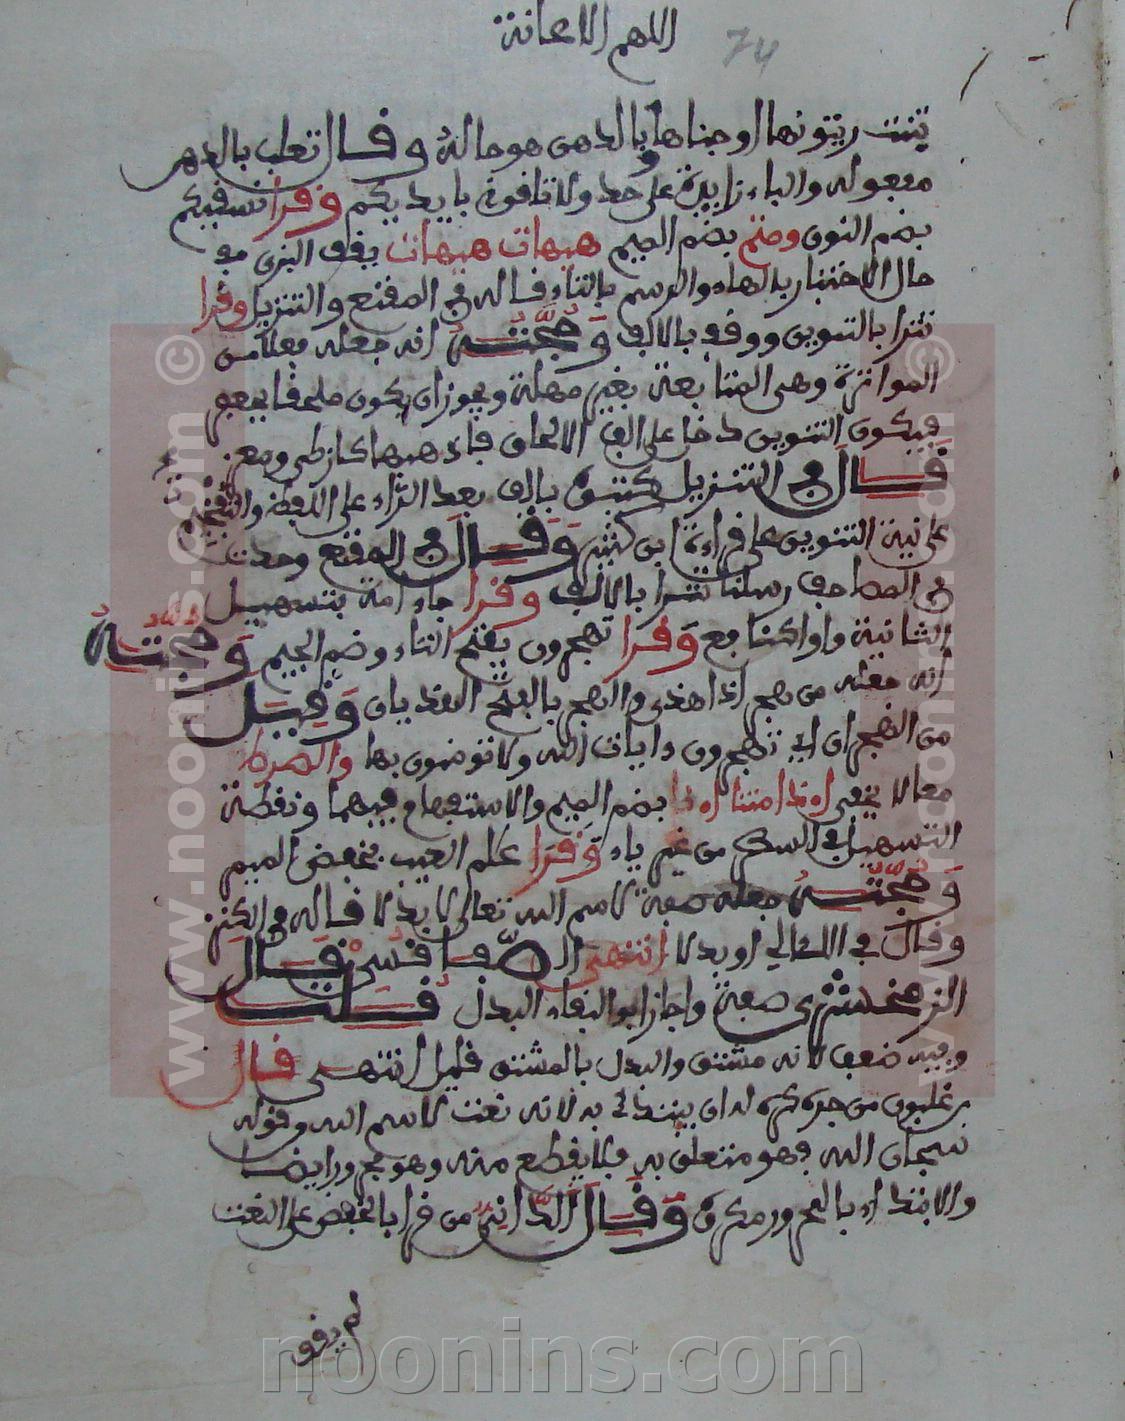 اللهم الاعانة
74
تنبت زيتونها او جناها بالدهن هو حاله وقال ثعلب بالدهن
مفعوله والباء زايدة على حد ولا تلقوا بايديكم وقرا نسقيكم
بضم النون وضم بضم الميم هيهات هيهات يقف البزي في
حال الاختبار بالهاء والرسم بالتاء قاله في المقنع والتنزيل وقرا
تترا بالتنوين ووقف بالالف وحجته انه جعله فعلا من
المواترة وهي المتابعة بغير مهلة ويجوز ان يكون ملحقا بجعفر
فيكون التنوين دخل على الف الالحاق فاذهبها كارطى ومعزى
قال في التنزيل كتبوه بالف بعد الراء على اللفظ والتفخيم
على نية التنوين على قراءة ابن كثير وقال في المقنع وجدت
في المصاحف رسلنا تترا بالالف وقرا جاء امة بتسهيل
الثانية واوا كنافع وقرا تهجرون بفتح التاء وضم الجيم وحجته
انه جعله من هجر اذا هذى والهجر بالفتح الهذيان وقيل
من الهجران اي تهجرون ءايات الله ولا تومنون بها والصراط
معا لا يخفى اءذا متنا اءنا بضم الميم والاستفهام فيهما ونقطة
التسهيل في السطر من غير ياء وقرا علم الغيب بخفض الميم
وحجته جعله صفة لاسم الله تعالى لا بدلا قاله في الكنز
وقال في اللئالي او بدلا انتهى الصفاقسي قال
الزمخشري صفة واجاز ابو البقاء البدل قلت
وفيه ضعف لانه مشتق والبدل بالمشتق قليل انتهى قال
ابن غلبون من جره كره له ان يبتدئ به لانه نعت لاسم الله وقوله
سبحان الله فهو متعلق به فلا يقطع منه وهو مجرور ايضا
والابتداء بالمجرور مكروه وقال الداني من قرا بالخفض على النعت
لم يقف
noonins.com
www.noonins.com ©
www.noonins.com ©